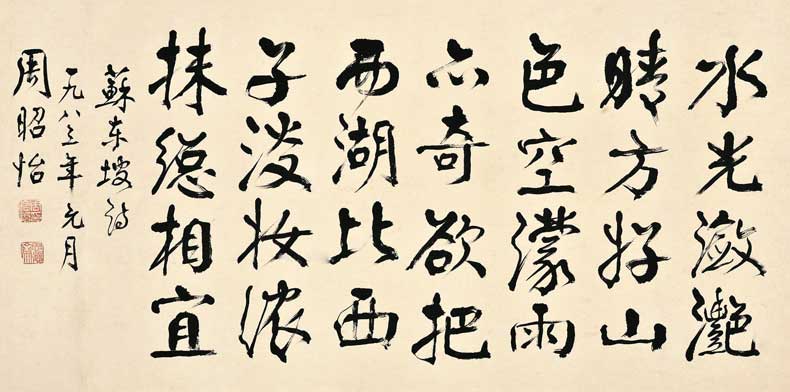 水光潋灧
晴方好山
色空濛雨
亦奇欲把
西湖比西
子淡妆浓
抹總相宜
蘇东坡詩
一九八三年元月
周昭怡